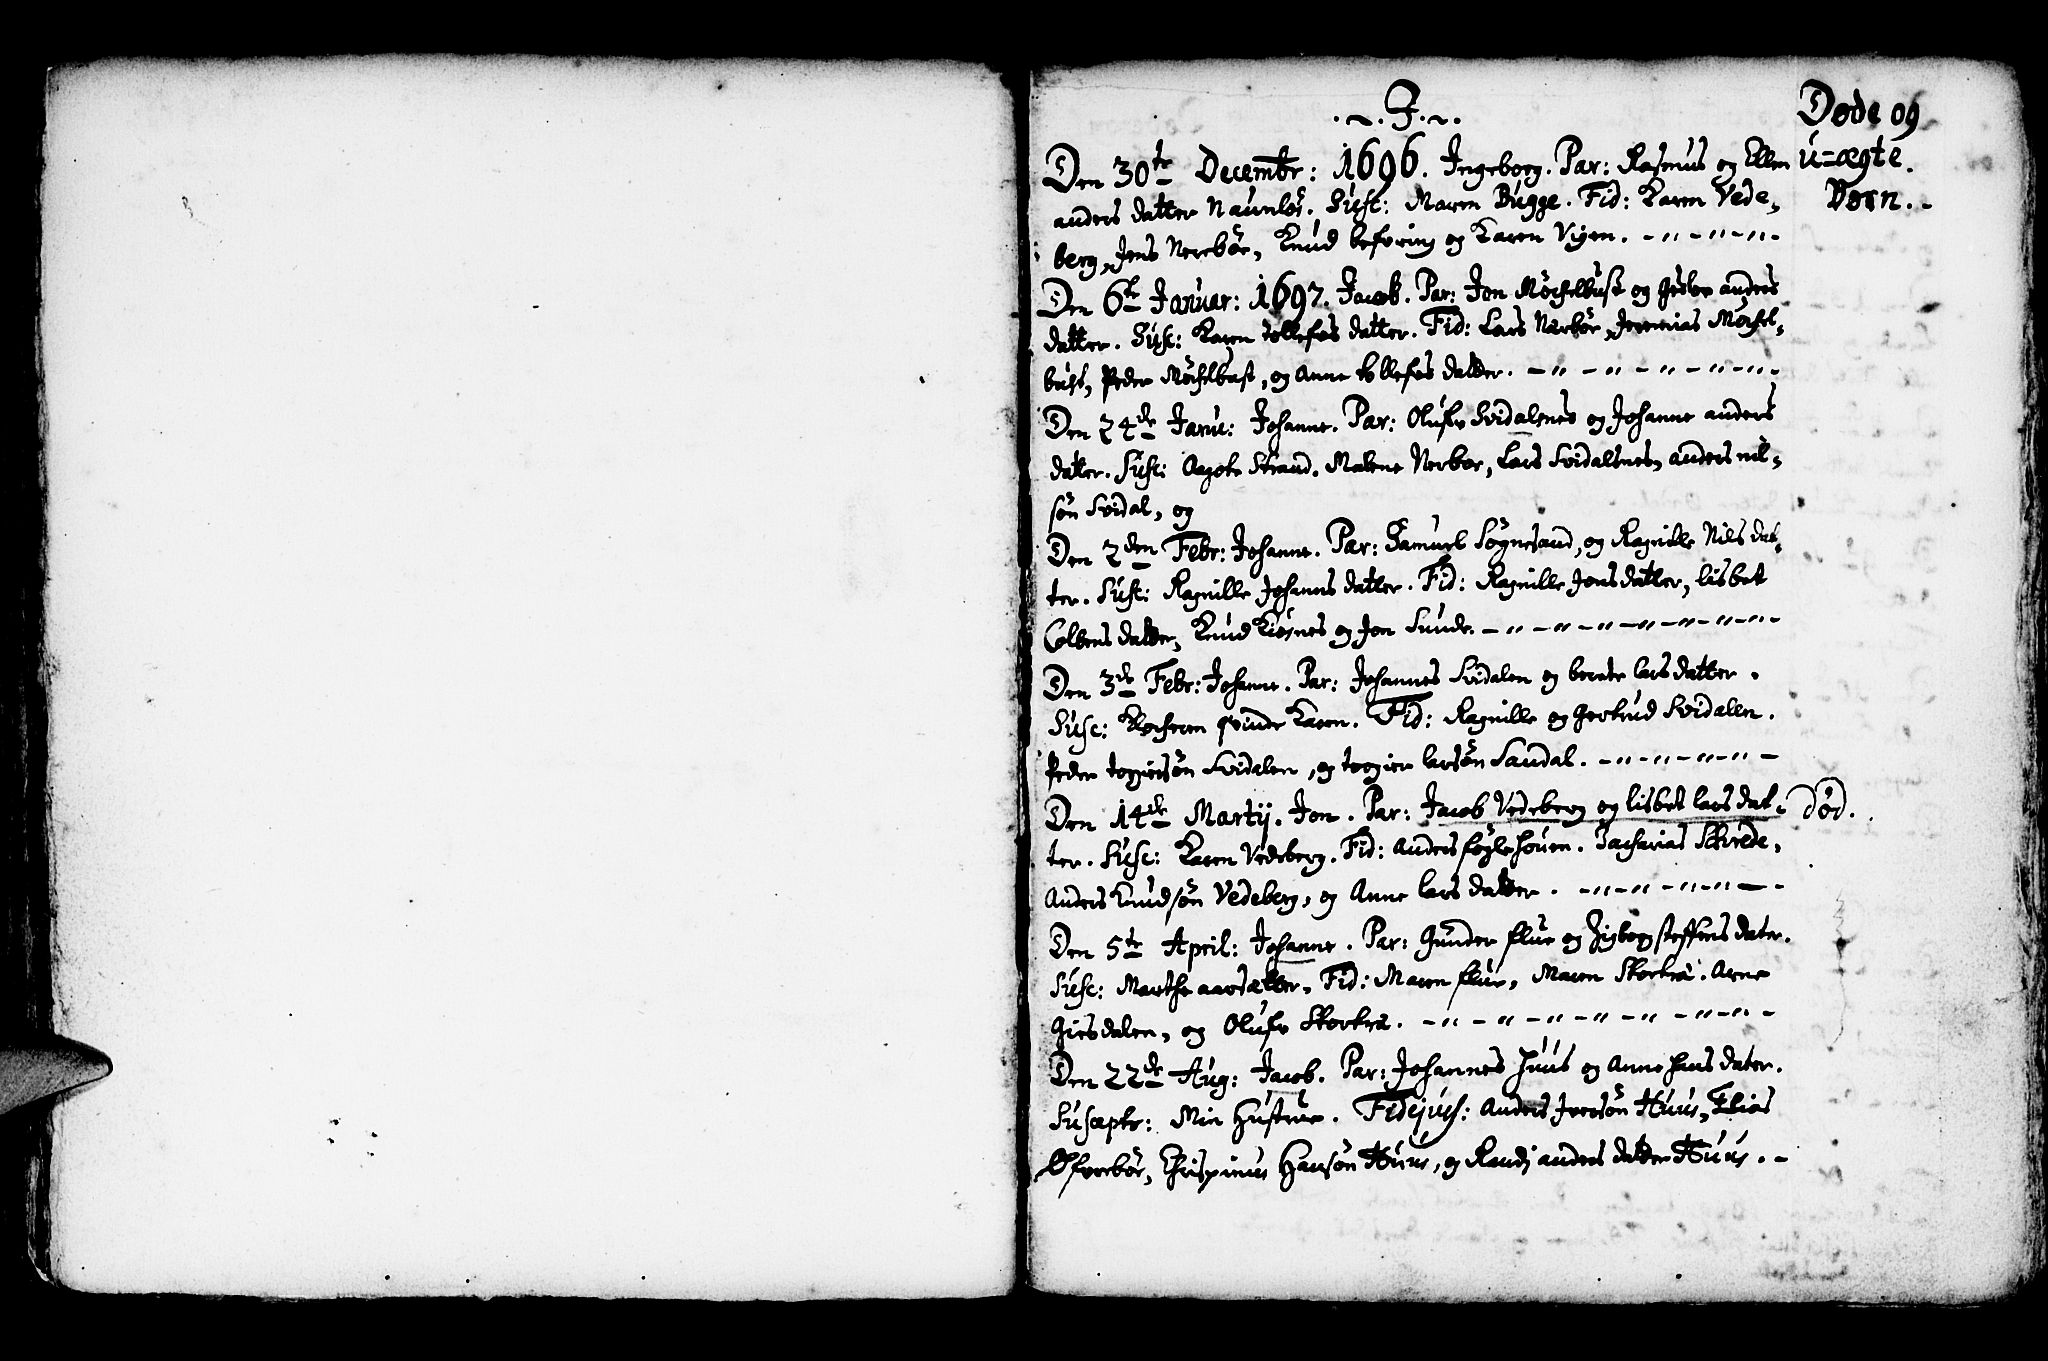 .~. J .~.
Døde og
u=ægte.
Børn.-
Den 30te Decembr: 1696. Ingeborg. Par: Rasmus og Ellen
anders datter Naunløs. Susc: Maren Bugge. Fid: Karen Vede-
berg, Jens Nerebøe, Knud befring og Karen Vigen.
Den 6te Januar: 1697. Jacob. Par: Jon Møchelbust og anders
datter. Susc: Karen tollefs datter. Fid: Lars Nærbøe, Jeremias Møchel-
bust, Peder Møchelbust, og Anne tollefs datter.
Den 24de Janu: Johanne. Par: Olufr Svidalsnes og Johanne anders
datter. Susc: Aagote Strand. Malene Nerboe, Lars Svidalsnes, anders nil-
søn Svidal, og
Den 2den Febr: Johanne. Par: Samuel Søgnesand, og Ragnille Nils dat-
ter. Susc: Ragnille Johanns datter. Fid: Ragnille Jons datter, lisbet
Colbens datter, Knud Kiøsnes og Jon Sunde.
Den 3de Febr: Johanne. Par: Johannes Svidalen og berete lars datter.
Susc: Klocheren qvinde Karen. Fid: Ragnille og Gertrud Svidalen.
Peder togiersøn Svidalen, og togier larsøn Sandal.
Den 14de Martij. Jon. Par: Jacob Vedeberg og lisbet lars dat- død.
ter. Susc: Karen Vedeberg. Fid: Anders føglehouen. Zacharias Skrede,
Anders Knudsøn Vedeberg, og Anne lars datter.
Den 5te April: Johanne. Par: Gunder flue og Zigbor steffens dater.
Susc: Marthe aarsætter, Fid: Maren flue, Maren Storkra. Arne
Giesdalen, og Olufr Storkra.
Den 22de Aug: Jacob. Par: Johannes Huus og Anne hans dater.
Susceptr: Min Hustrue. Fidejusc: Anders Iversøn Huus, Elias
Øfrebøe, Chrispinus Hansøn Huus, og Randj anders datter Huus.-